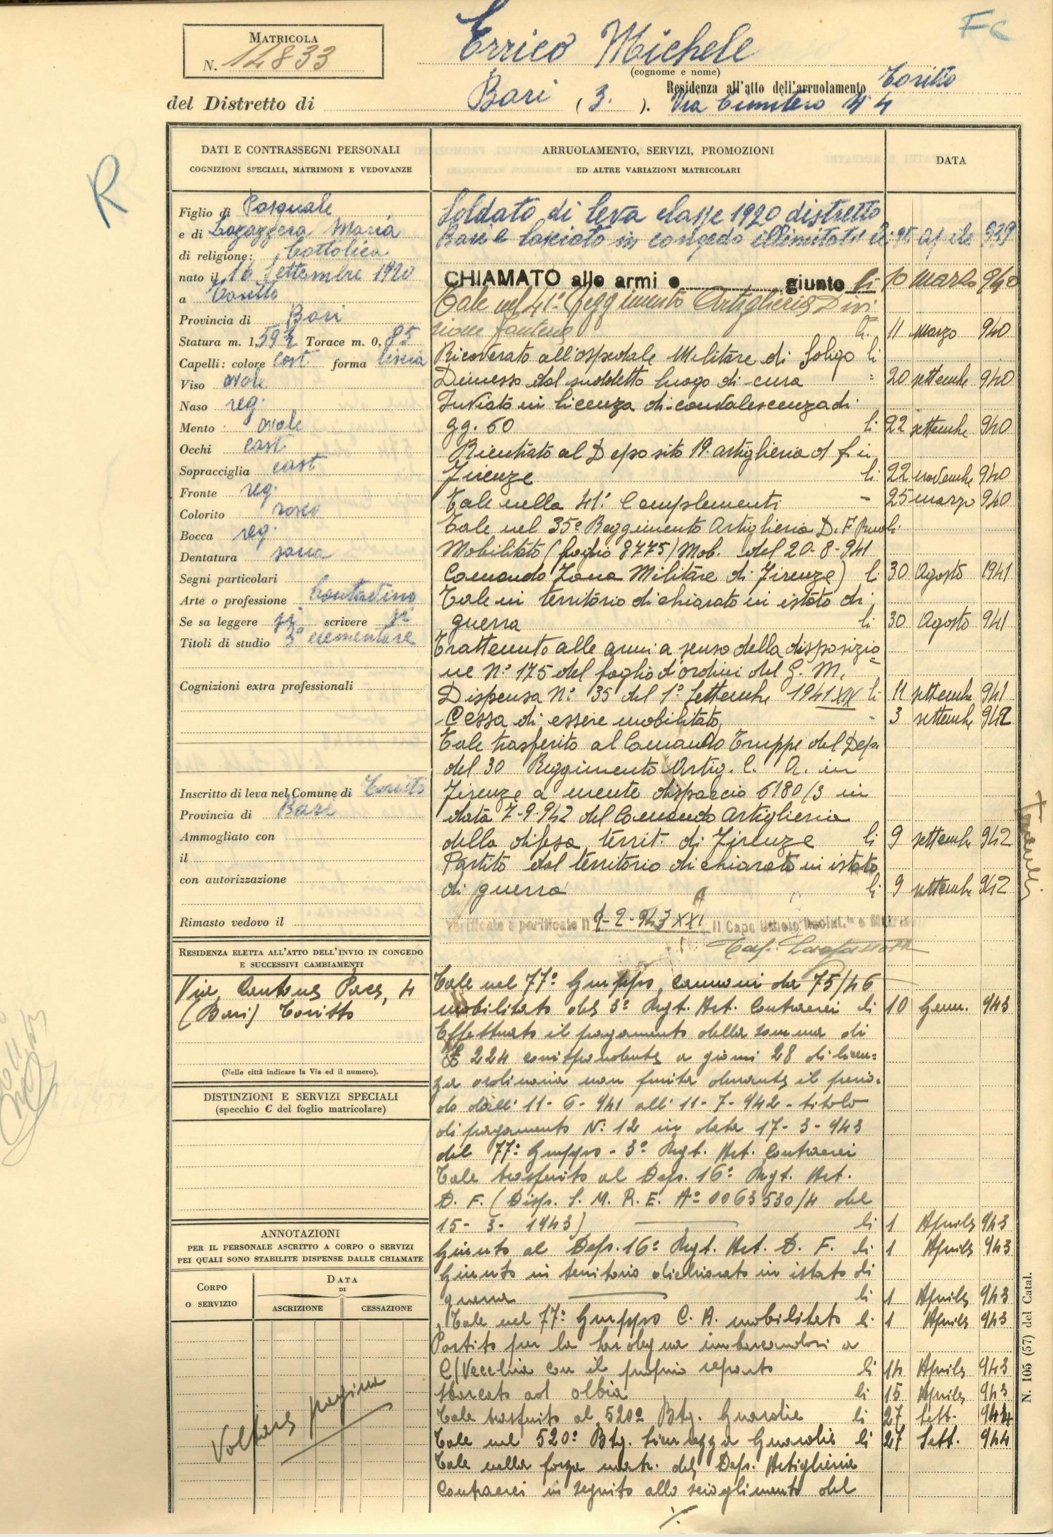 FC
MATRICOLA
N. 14833
Errico Michele
(cognome e nome)
Residenza all'atto dell'arruolamento Toritto
del Distretto di Bari (3.). Via Cimitero N 4
R
DATI E CONTRASSEGNI PERSONALI
COGNIZIONI SPECIALI, MATRIMONI E VEDOVANZE
Figlio di Pasquale
e di Maria
di religione: Cattolica
nato il 16 Settembre 1920
a Toritto
Provincia di Bari
Statura m. 1,59½ Torace m. 0,85
Capelli: colore cast forma liscia
Viso ovale
Naso reg.
Mento ovale
Occhi cast
Sopracciglia cast
Fronte reg.
Colorito roseo
Bocca reg.
Dentatura sana
Segni particolari
Arte o professione Contadino
Se sa leggere si scrivere si
Titoli di studio 3ª elementare
Cognizioni extra professionali
Inscritto di leva nel Comune di Toritto
Provincia di Bari
Ammogliato con
il
con autorizzazione
Rimasto vedovo il
RESIDENZA ELETTA ALL'ATTO DELL'INVIO IN CONGEDO
E SUCCESSIVI CAMBIAMENTI
Via 4
(Bari) Toritto
(Nelle città indicare la Via ed il numero).
DISTINZIONI E SERVIZI SPECIALI
(specchio C del foglio matricolare)
ANNOTAZIONI
PER IL PERSONALE ASCRITTO A CORPO O SERVIZI
PEI QUALI SONO STABILITE DISPENSE DALLE CHIAMATE
CORPO
O SERVIZIO
DATA
DI
ASCRIZIONE
CESSAZIONE
Voltare pagina
ARRUOLAMENTO, SERVIZI, PROMOZIONI
ED ALTRE VARIAZIONI MATRICOLARI
DATA
Soldato di leva classe 1920 distretto
Bari e lasciato in congedo illimitato li 15 aprile 939
CHIAMATO alle armi e giunto li 10 marzo 940
Tale nel 41° Reggimento Artiglieria Divi
sione fanteria li 11 marzo 940
Ricoverato all'ospedale Militare di li
Dimesso dal suddetto luogo di cura " 20 settembre 940
Inviato in licenza di convalescenza di
gg. 60 li 22 settembre 940
Rientrato al Deposito 19 artiglieria d f in
Firenze li 22 novembre 940
Tale nella 41ª Complementi - 25 marzo 940
Tale nel 35° Reggimento Artiglieria D. F.
Mobilitato (foglio 8775/Mob. del 20-8-941
Comando Zona Militare di Firenze) li 30 Agosto 1941
Tale in territorio dichiarato in istato di
guerra li 30 Agosto 941
Trattenuto alle armi a senso della disposizio
ne N° 175 del foglio d'ordini del G. M.
Dispensa N° 35 del 1° Settembre 1941 XIX li 11 settembre 941
Cessa di essere mobilitato - 3 settembre 942
Tale trasferito al Comando Truppe del Dep.
del 30 Reggimento Artig. C. A. in
Firenze a mente dispaccio 6180/3 in
data 7-9-942 del Comando Artiglieria
della difesa territ. di Firenze li 9 settembre 942
Partito dal territorio dichiarato in istato
di guerra li 9 settembre 942
Verificato e parificato il 1-2-943 XXI Il Capo Ufficio
Tale nel 77° Gruppo cannoni da 75/46
mobilitato del 3° Rgt. Art. Contraerei li 10 Genn. 943
Effettuato il pagamento della somma di
£ 224 corrispondente a giorni 28 di licen-
za ordinaria non fruita durante il perio-
do dall' 11-6-941 all' 11-7-942 - titolo
di pagamento N. 12 in data 17-3-943
del 77° Gruppo - 3° Rgt. Art. Contraerei
Tale trasferito al Dep. 16° Rgt. Art.
D. F. (Disp. S. M. R. E. N° 0063530/4 del
15-3-1943) li 1 Aprile 943
Giunto al Dep. 16° Rgt. Art. D. F. li 1 Aprile 943
Giunto in territorio dichiarato in istato di
guerra li 1 Aprile 943
Tale nel 77° Gruppo C. A. mobilitato li 1 Aprile 943
Partito per la Sardegna imbarcandosi a
C/Vecchia con il proprio reparto li 14 Aprile 943
Sbarcato ad Olbia li 15 Aprile 943
Tale trasferito al 520° Btg. Guardie li 27 Sett. 944
Tale nel 520° Btg. Guardie li 27 Sett. 944
Tale nella forza matr. del Dep. Artiglieria
Contraerei in seguito allo scioglimento del
./.
N. 105 (57) del Catal.